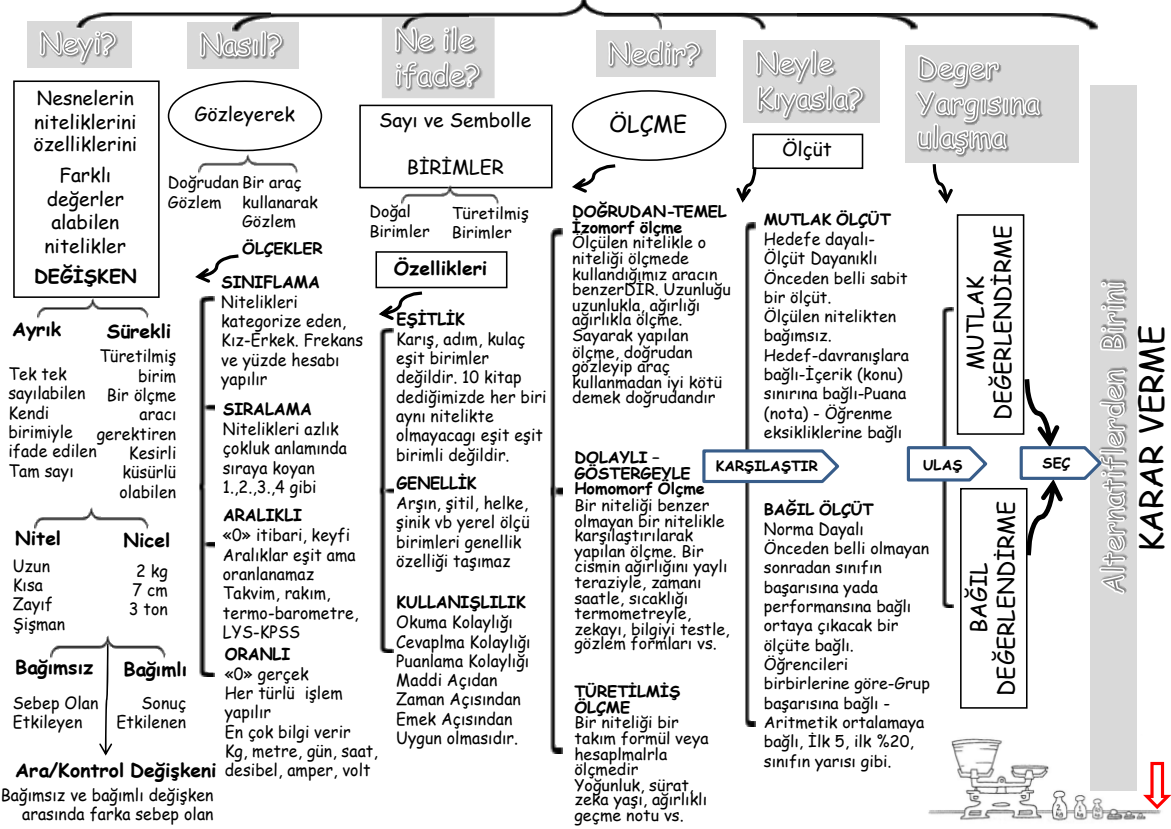 Neyi?
Nesnelerin
niteliklerini
özelliklerini
Farklı
değerler
alabilen
nitelikler
DEĞİŞKEN
Ayrık
Tek tek
sayılabilen
Kendi
birimiyle
ifade edilen
Tam sayı
Sürekli
Türetilmiş
birim
Bir ölçme
aracı
gerektiren
Kesirli
küsürlü
olabilen
Nitel
Uzun
Kısa
Zayıf
Şişman
Nicel
2 kg
7 cm
3 ton
Bağımsız
Sebep Olan
Etkileyen
Bağımlı
Sonuç
Etkilenen
Ara/Kontrol Değişkeni
Bağımsız ve bağımlı değişken
arasında farka sebep olan
Nasıl?
Gözleyerek
Doğrudan
Gözlem
Bir araç
kullanarak
Gözlem
ÖLÇEKLER
SINIFLAMA
Nitelikleri
kategorize eden,
Kız-Erkek. Frekans
ve yüzde hesabı
yapılır
SIRALAMA
Nitelikleri azlık
çokluk anlamında
sıraya koyan
1.,2.,3.,4 gibi
ARALIKLI
«0» itibari, keyfi
Aralıklar eşit ama
oranlanamaz
Takvim, rakım,
termo-barometre,
LYS-KPSS
ORANLI
«0» gerçek
Her türlü işlem
yapılır
En çok bilgi verir
Kg, metre, gün, saat,
desibel, amper, volt
Ne ile
ifade?
Sayı ve Sembolle
BİRİMLER
Doğal
Birimler
Türetilmiş
Birimler
Özellikleri
EŞİTLİK
Karış, adım, kulaç
eşit birimler
değildir. 10 kitap
dediğimizde her biri
aynı nitelikte
olmayacagı eşit eşit
birimli değildir.
GENELLİK
Arşın, şitil, helke,
şinik vb yerel ölçü
birimleri genellik
özelliği taşımaz
KULLANIŞLILIK
Okuma Kolaylığı
Cevaplma Kolaylığı
Puanlama Kolaylığı
Maddi Açıdan
Zaman Açısından
Emek Açısından
Uygun olmasıdır.
Nedir?
ÖLÇME
DOĞRUDAN-TEMEL
İzomorf ölçme
Ölçülen nitelikle o
niteliği ölçmede
kullandığımız aracın
benzerDİR. Uzunluğu
uzunlukla, ağırlığı
ağırlıkla ölçme.
Sayarak yapılan
ölçme, doğrudan
gözleyip araç
kullanmadan iyi kötü
demek doğrudandır
DOLAYLI –
GÖSTERGEYLE
Homomorf Ölçme
Bir niteliği benzer
olmayan bir nitelikle
karşılaştırılarak
yapılan ölçme. Bir
cismin ağırlığını yaylı
teraziyle, zamanı
saatle, sıcaklığı
termometreyle,
zekayı, bilgiyi testle,
gözlem formları vs.
TÜRETİLMİŞ
ÖLÇME
Bir niteliği bir
takım formül veya
hesaplmalrla
ölçmedir
Yoğunluk, sürat,
zeka yaşı, ağırlıklı
geçme notu vs.
Neyle
Kıyasla?
Ölçüt
MUTLAK ÖLÇÜT
Hedefe dayalı-
Ölçüt Dayanıklı
Önceden belli sabit
bir ölçüt.
Ölçülen nitelikten
bağımsız.
Hedef-davranışlara
bağlı-İçerik (konu)
sınırına bağlı-Puana
(nota) - Öğrenme
eksikliklerine bağlı
KARŞILAŞTIR
BAĞIL ÖLÇÜT
Norma Dayalı
Önceden belli olmayan
sonradan sınıfın
başarısına yada
performansına bağlı
ortaya çıkacak bir
ölçüte bağlı.
Öğrencileri
birbirlerine göre-Grup
başarısına bağlı -
Aritmetik ortalamaya
bağlı, İlk 5, ilk %20,
sınıfın yarısı gibi.
Deger
Yargısına
ulaşma
MUTLAK
DEĞERLENDİRME
ULAŞ
SEÇ
BAĞIL
DEĞERLENDİRME
Alternatiflerden Birini
KARAR VERME